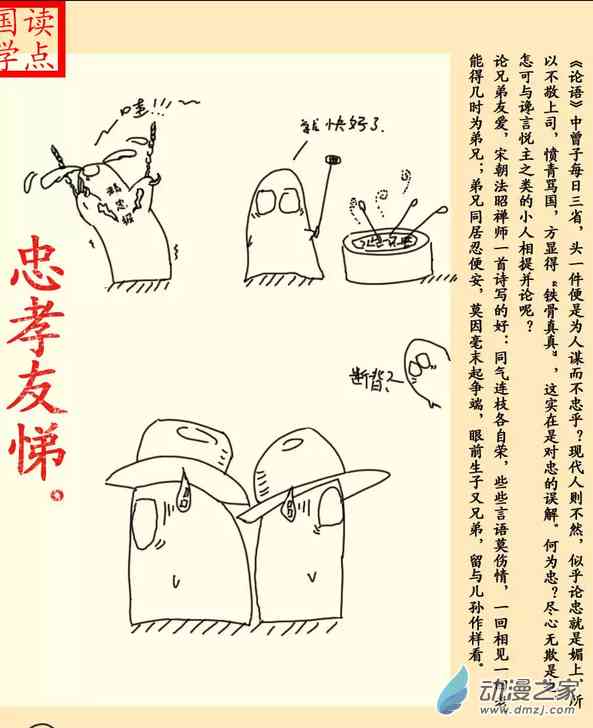 读点
国学
忠孝友悌。
哇!!!~
就快好了
断背?
《论语》中曾子每日三省，头一件便是为人谋而不忠乎？现代人则不然，似乎论忠就是媚上、所
以不敬上司，愤青骂国，方显得“铁骨真真”，这实在是对忠的误解。何为忠？尽心无欺是
怎可与谗言悦主之类的小人相提并论呢？
论兄弟友爱，宋朝法昭禅师一首诗写的好：同气连枝各自荣，些些言语莫伤情，一回相见一回老
能得几时为弟兄；弟兄同居忍便安，莫因毫末起争端，眼前生子又兄弟，留与儿孙作样看。
动漫之家
www.dmzj.com